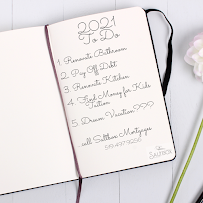 2021
To Do
1. Renovate Bathroom
2. Pay Off Debt
3. Renovate Kitchen
4. Find Money for Kids
Tuition
5. Dream Vacation???
call Saltbox Mortgages